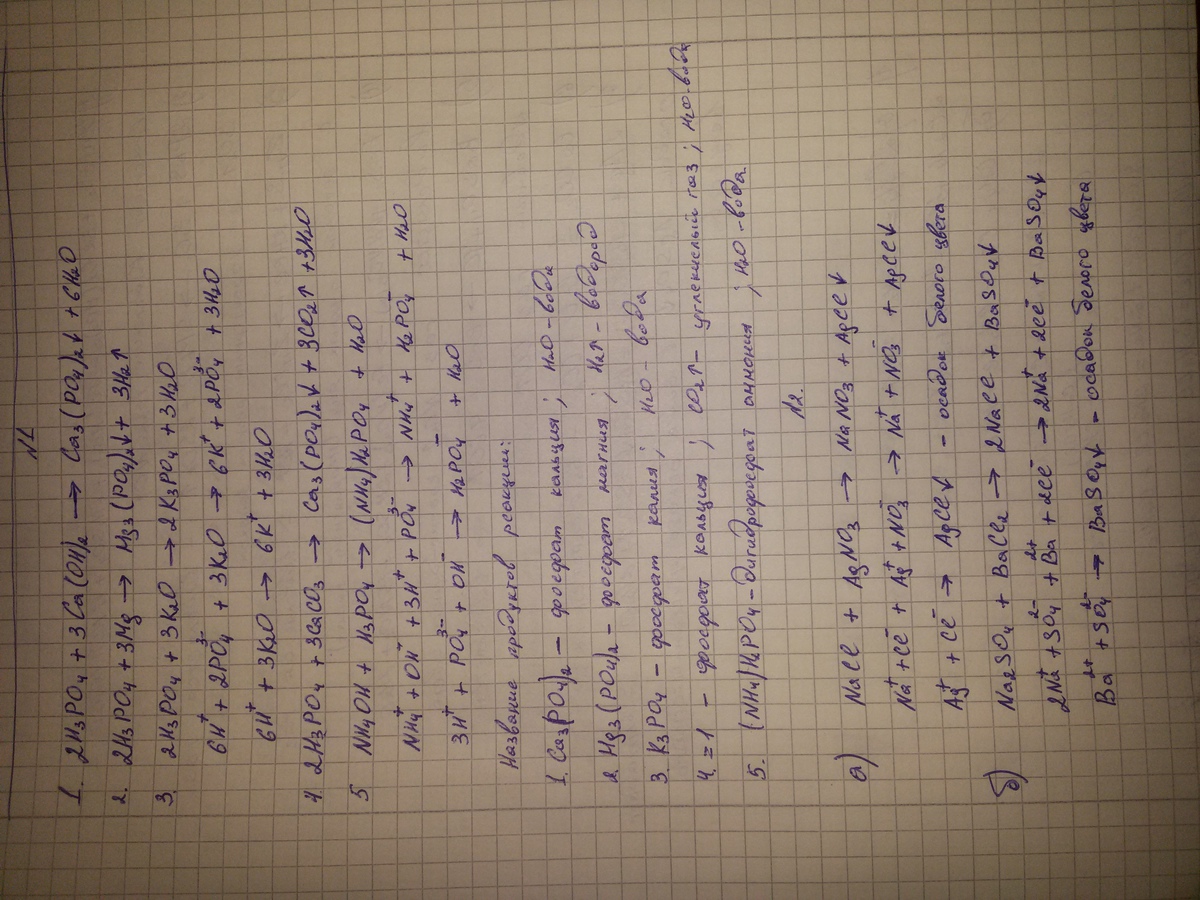 N1
1. 2H3PO4 + 3Ca(OH)2 → Ca3(PO4)2↓ + 6H2O
2. 2H3PO4 + 3Mg → Mg3(PO4)2↓ + 3H2↑
3. 2H3PO4 + 3K2O → 2K3PO4 + 3H2O
6H⁺ + 2PO4³⁻ + 3K2O → 6K⁺ + 2PO4³⁻ + 3H2O
6H⁺ + 3K2O → 6K⁺ + 3H2O
4. 2H3PO4 + 3CaCO3 → Ca3(PO4)2↓ + 3CO2↑ + 3H2O
5 NH4OH + H3PO4 → (NH4)H2PO4 + H2O
NH4⁺ + OH⁻ + 3H⁺ + PO4³⁻ → NH4⁺ + H2PO4⁻ + H2O
3H⁺ + PO4³⁻ + OH⁻ → H2PO4⁻ + H2O
Название продуктов реакции:
1. Ca3(PO4)2 – фосфат кальция; H2O – вода
2. Mg3(PO4)2 – фосфат магния; H2↑ – водород
3. K3PO4 – фосфат калия; H2O – вода
4. =1 – фосфат кальция; CO2↑ – углекислый газ; H2O – вода
5. (NH4)H2PO4 – дигидрофосфат аммония; H2O – вода
N2.
а) NaCl + AgNO3 → NaNO3 + AgCl↓
Na⁺ + Cl⁻ + Ag⁺ + NO3⁻ → Na⁺ + NO3⁻ + AgCl↓
Ag⁺ + Cl⁻ → AgCl↓ – осадок белого цвета
б) Na2SO4 + BaCl2 → 2NaCl + BaSO4↓
2Na⁺ + SO4²⁻ + Ba²⁺ + 2Cl⁻ → 2Na⁺ + 2Cl⁻ + BaSO4↓
Ba²⁺ + SO4²⁻ → BaSO4↓ – осадок белого цвета